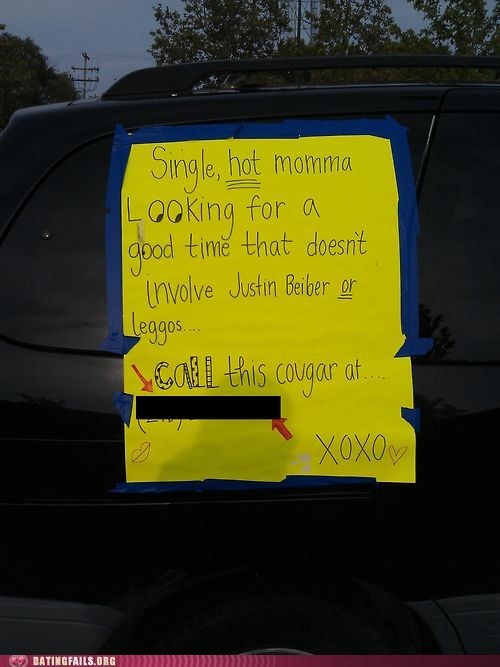 Single, hot momma
Looking for a
good time that doesn't
involve Justin Beiber or
leggos....
call this cougar at....
XOXO
DATINGFAILS.ORG